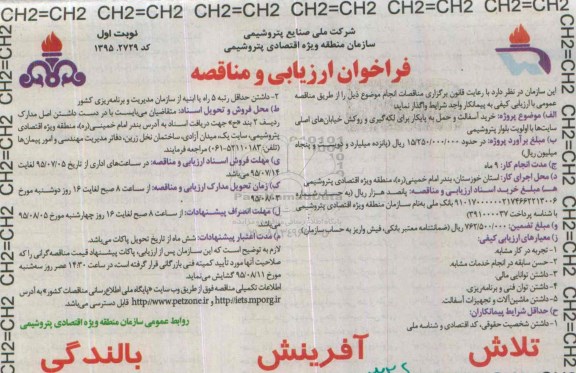 CH2=CH2 CH2=CH2 CH2=CH2 CH2=CH2 CH2=CH2 CH2=CH2 CH2=CH2
شرکت ملی صنایع پتروشیمی
سازمان منطقه ویژه اقتصادی پتروشیمی
نوبت اول
کد ۲۷۲۹. ۱۳۹۵
فراخوان ارزیابی و مناقصه
این سازمان در نظر دارد با رعایت قانون برگزاری مناقصات انجام موضوع ذیل را از طریق مناقصه
عمومی با ارزیابی کیفی به پیمانکار واجد شرایط واگذار نماید:
الف) موضوع پروژه: خرید آسفالت و حمل به پایکار برای لکه‌گیری و روکش خیابان‌های اصلی
سایت‌ها با اولویت بلوار پتروشیمی
ب) مبلغ برآورد پروژه: ۱۵/۲۵۰/۰۰۰/۰۰۰ ریال (پانزده میلیارد و دویست و پنجاه
میلیون ریال)
ج) مدت انجام کار: ۹ ماه
د) محل اجرای کار: استان خوزستان، بندر امام خمینی(ره)، منطقه ویژه اقتصادی پتروشیمی
هـ) مبلغ خرید اسناد ارزیابی و مناقصه: پانصد هزار ریال (به حساب شماره
بانک ملی به‌نام سازمان منطقه ویژه اقتصادی پتروشیمی
با شناسه پرداخت ۳۹۱۰۰۰۰۳۷)
و) مبلغ تضمین: ۷۶۲/۵۰۰/۰۰۰ ریال (ضمانتنامه معتبر بانکی، فیش واریز به حساب سازمان)
ز) معیارهای ارزیابی کیفی:
۱- تجربه در کار مشابه.
۲- حسن سابقه در انجام خدمات مشابه.
۳- داشتن توانایی مالی.
۴- داشتن توان فنی و برنامه‌ریزی.
۵- داشتن ماشین‌آلات و تجهیزات آسفالت.
ح) حداقل شرایط پیمانکاران:
۱- داشتن شخصیت حقوقی، کد اقتصادی و شناسه ملی
۲- داشتن حداقل رتبه ۵ راه یا ابنیه از سازمان مدیریت و برنامه‌ریزی کشور
ط) محل فروش و تحویل اسناد: متقاضیان می‌بایست با در دست داشتن اصل مدارک
ردیف ۲ بند «ح» جهت دریافت اسناد به آدرس بندر امام خمینی(ره)، منطقه ویژه اقتصادی
پتروشیمی، سایت یک، میدان آزادی، ساختمان نخل زرین، دفاتر مدیریت مهندسی و امور پیمان‌ها
(تلفن: ۵۲۱۱۰۱۸۳-۰۶۱) مراجعه فرمایند.
ی) مهلت فروش اسناد ارزیابی و مناقصه: در ساعت‌های اداری از تاریخ ۹۵/۰۷/۰۵ لغایت
۹۵/۰۷/۱۴ می‌باشد.
ک) زمان تحویل مدارک ارزیابی و مناقصه: از ساعت ۸ صبح لغایت ۱۶ روز دوشنبه مورخ
۹۵/۰۸/۰۳
ل) مهلت انصراف پیشنهادات: از ساعت ۸ صبح لغایت ۱۶ روز چهارشنبه مورخ ۹۵/۰۸/۰۵
می‌باشد.
م) مدت اعتبار پیشنهادات: شش ماه از تاریخ تحویل پاکات می‌باشد.
لازم به توضیح است که این سازمان پس از ارزیابی، پاکات پیشنهاد قیمت مناقصه‌گرانی را که
صلاحیت آنها مورد تأیید کمیته فنی بازرگانی قرار گرفته است، در ساعت ۱۴:۳۰ عصر روز سه‌شنبه
مورخ ۹۵/۰۸/۱۱ گشایش می‌نماید.
اطلاعات تکمیلی مناقصه فوق از طریق وب سایت «پایگاه ملی اطلاع‌رسانی مناقصات کشور» به آدرس
http//iets.mporg.ir و http//www.petzone.ir قابل دسترسی می‌باشد.
روابط عمومی سازمان منطقه ویژه اقتصادی پتروشیمی
تلاش آفرینش بالندگی